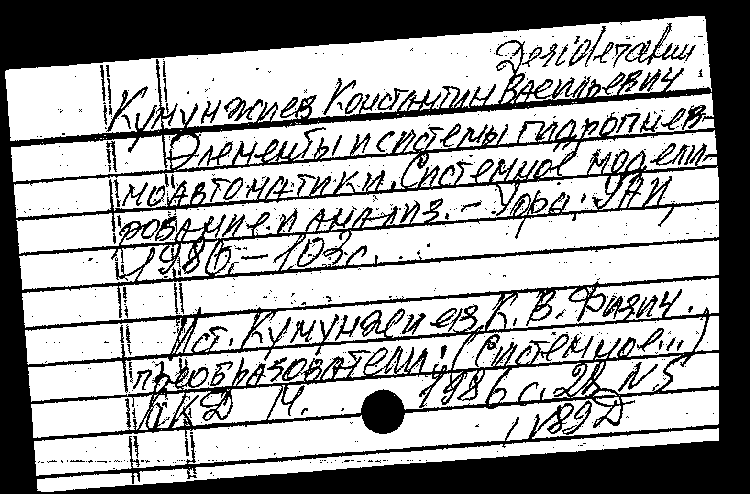 Desiderata
Кумунжиев Константин Васильевич.
Элементы и системы гидропнев-
моавтоматики. Системное модели-
рование и анализ. – Уфа: УАИ,
1986. – 103с.
Ист. Кумунжиев, К. В. Физич.
преобразователи: (Системное...)
М. 1986 с. 28 N 5
189Д